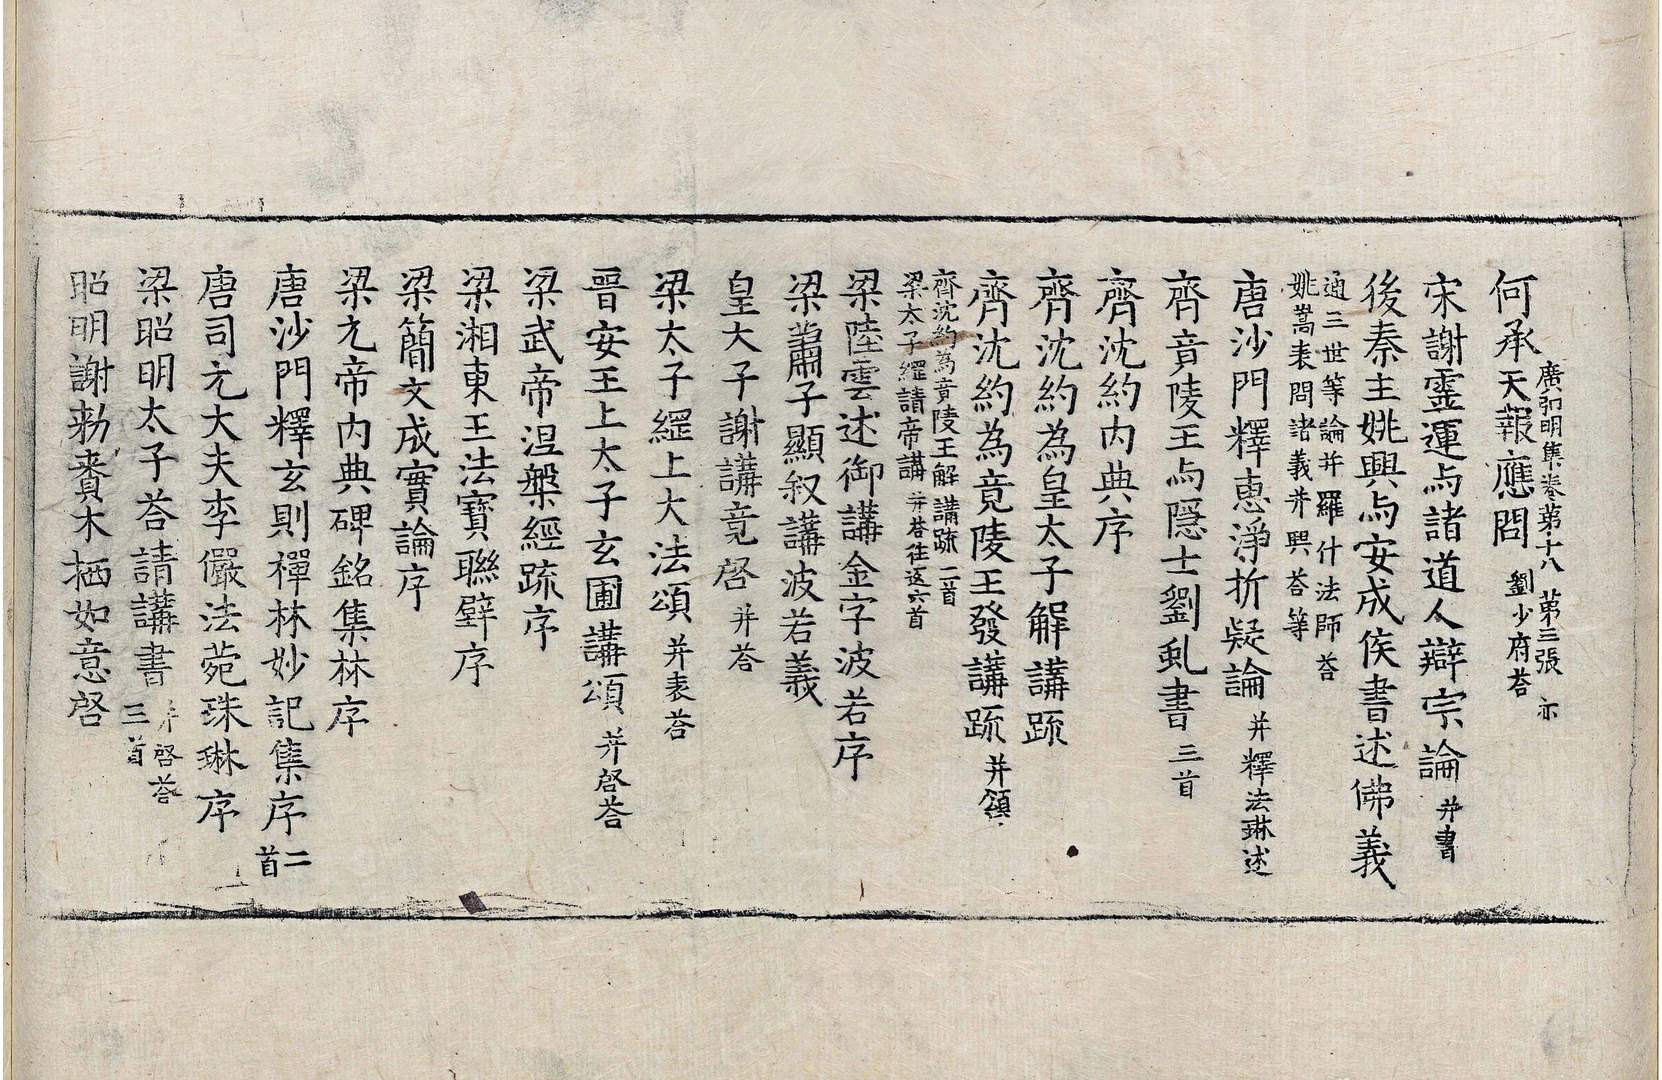 廣弘明集卷苐十八 苐三張 亦
何承天報應問 劉少府荅
宋謝霊運与諸道人辯宗論 并書
後秦主姚興与安成侯書述佛義
通三世等論并羅什法師荅
姚嵩表問諸義并興荅等
唐沙門釋恵淨折疑論 并釋法琳述
齊竟陵王与隠士劉虬書 三首
齊沈約内典序
齊沈約為皇太子解講䟽
齊沈約為竟陵王發講䟽 并頌
齊沈約為竟陵王解講䟽二首
梁太子綱請帝講 并荅往返六首
梁陸雲述御講金字波若序
梁蕭子顯叙講波若義
皇太子謝講竟啓 并荅
梁太子綱上大法頌 并表荅
晉安王上太子玄圃講頌 并啓荅
梁武帝涅槃經䟽序
梁湘東王法寶聯璧序
梁簡文成實論序
梁元帝内典碑銘集林序
唐沙門釋玄則禪林妙記集序 二首
唐司元大夫李儼法菀珠琳序
梁昭明太子荅請講書 并啓荅三首
昭明謝勑賚木栖如意啓